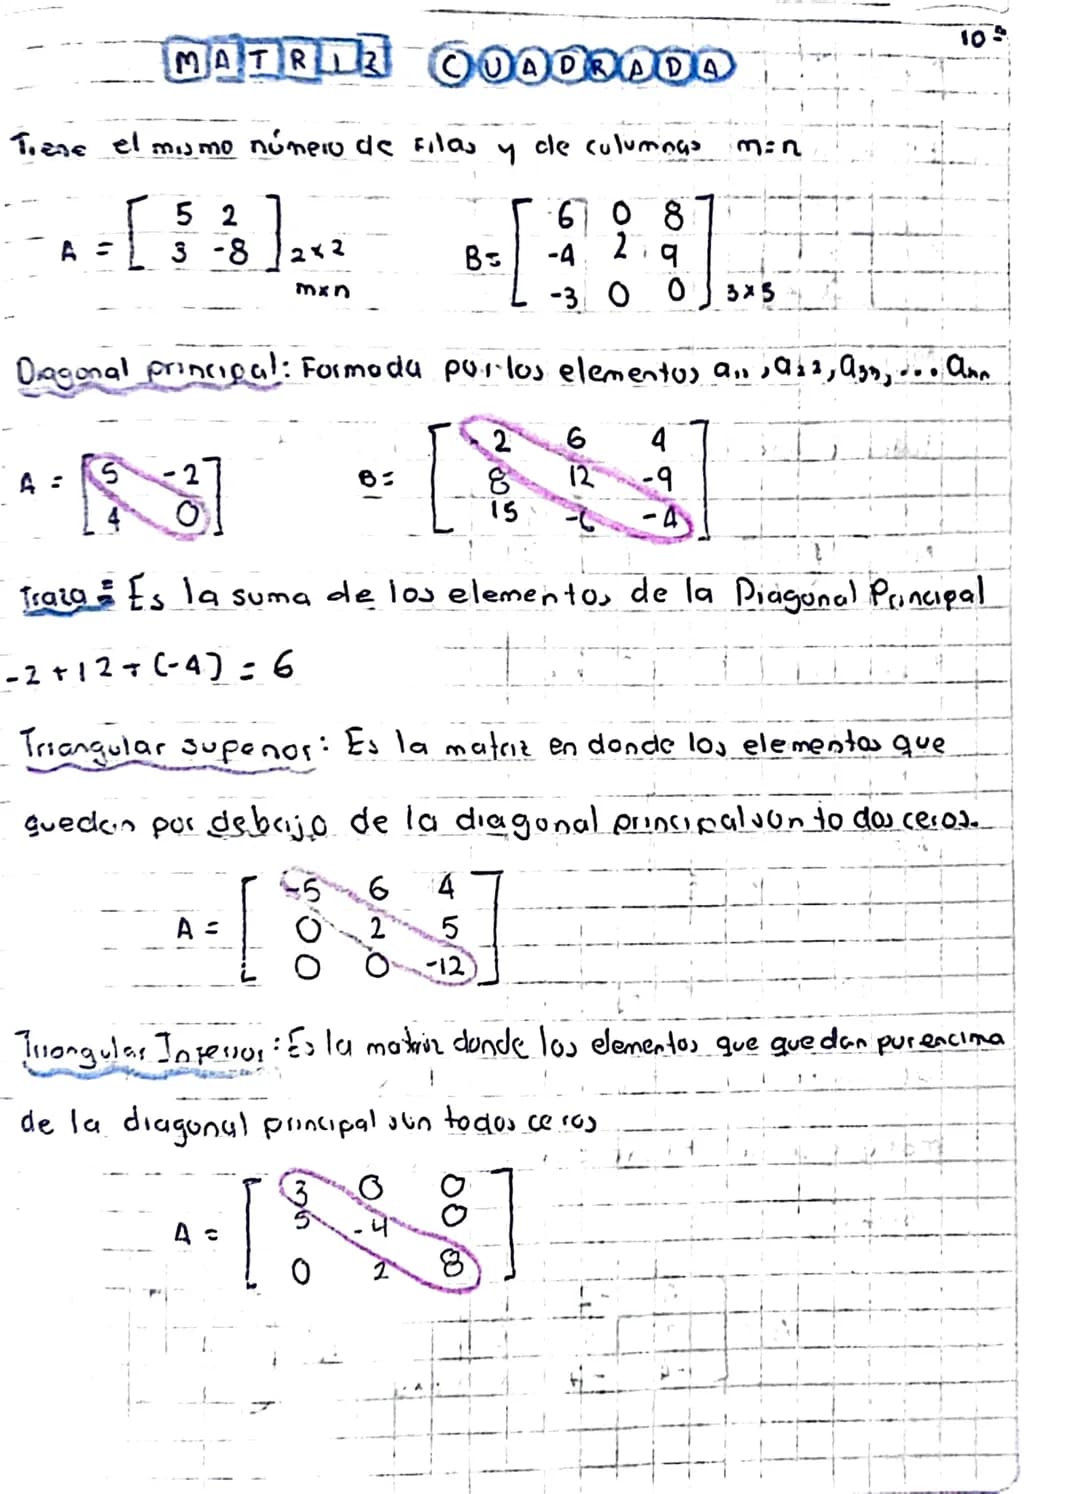 10º
MATRIZ CUADRADA
Tiene el mismo número de filas y de columnas m=n
A = [ 5 2
3 -8 ] 2x2
mxn
B= [ 6 0 8
-4 2 9
-3 0 0 ] 3x3
Diagonal principal: Formada por los elementos a₁₁, a₂₂, a₃₃, ... aₙₙ
A = [ 5 -2
4 0 ]
B= [ -2 6 4
8 12 -9
15 -6 -4 ]
Traza = Es la suma de los elementos de la Diagonal Principal
-2 + 12 + (-4) = 6
Triangular superior: Es la matriz en donde los elementos que
quedan por debajo de la diagonal principal son todos ceros.
A = [ -5 6 4
0 2 5
0 0 -12 ]
Triangular Inferior: Es la matriz donde los elementos que quedan por encima
de la diagonal principal son todos ceros
A = [ 3 0 0
5 -4 0
0 2 8 ]